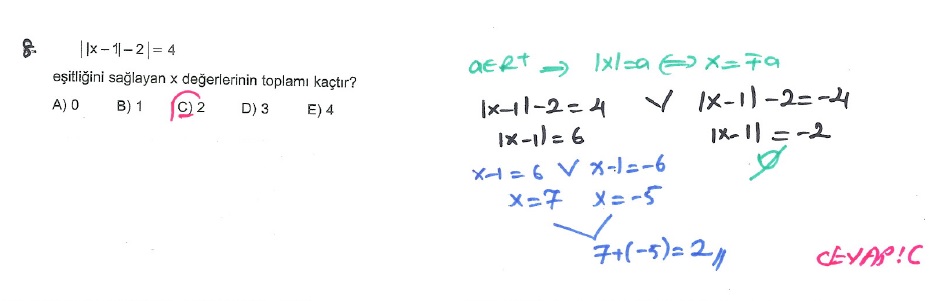 8- ||x – 1| – 2| = 4
eşitliğini sağlayan x değerlerinin toplamı kaçtır?
A) 0 B) 1 C) 2 D) 3 E) 4
a∈R⁺ → |x|=a ⟺ x=∓a
|x-1|-2=4 ∨ |x-1|-2=-4
|x-1|=6 |x-1|=-2
x-1=6 ∨ x-1=-6 ∅
x=7 x=-5
7+(-5)=2//
CEVAP:C